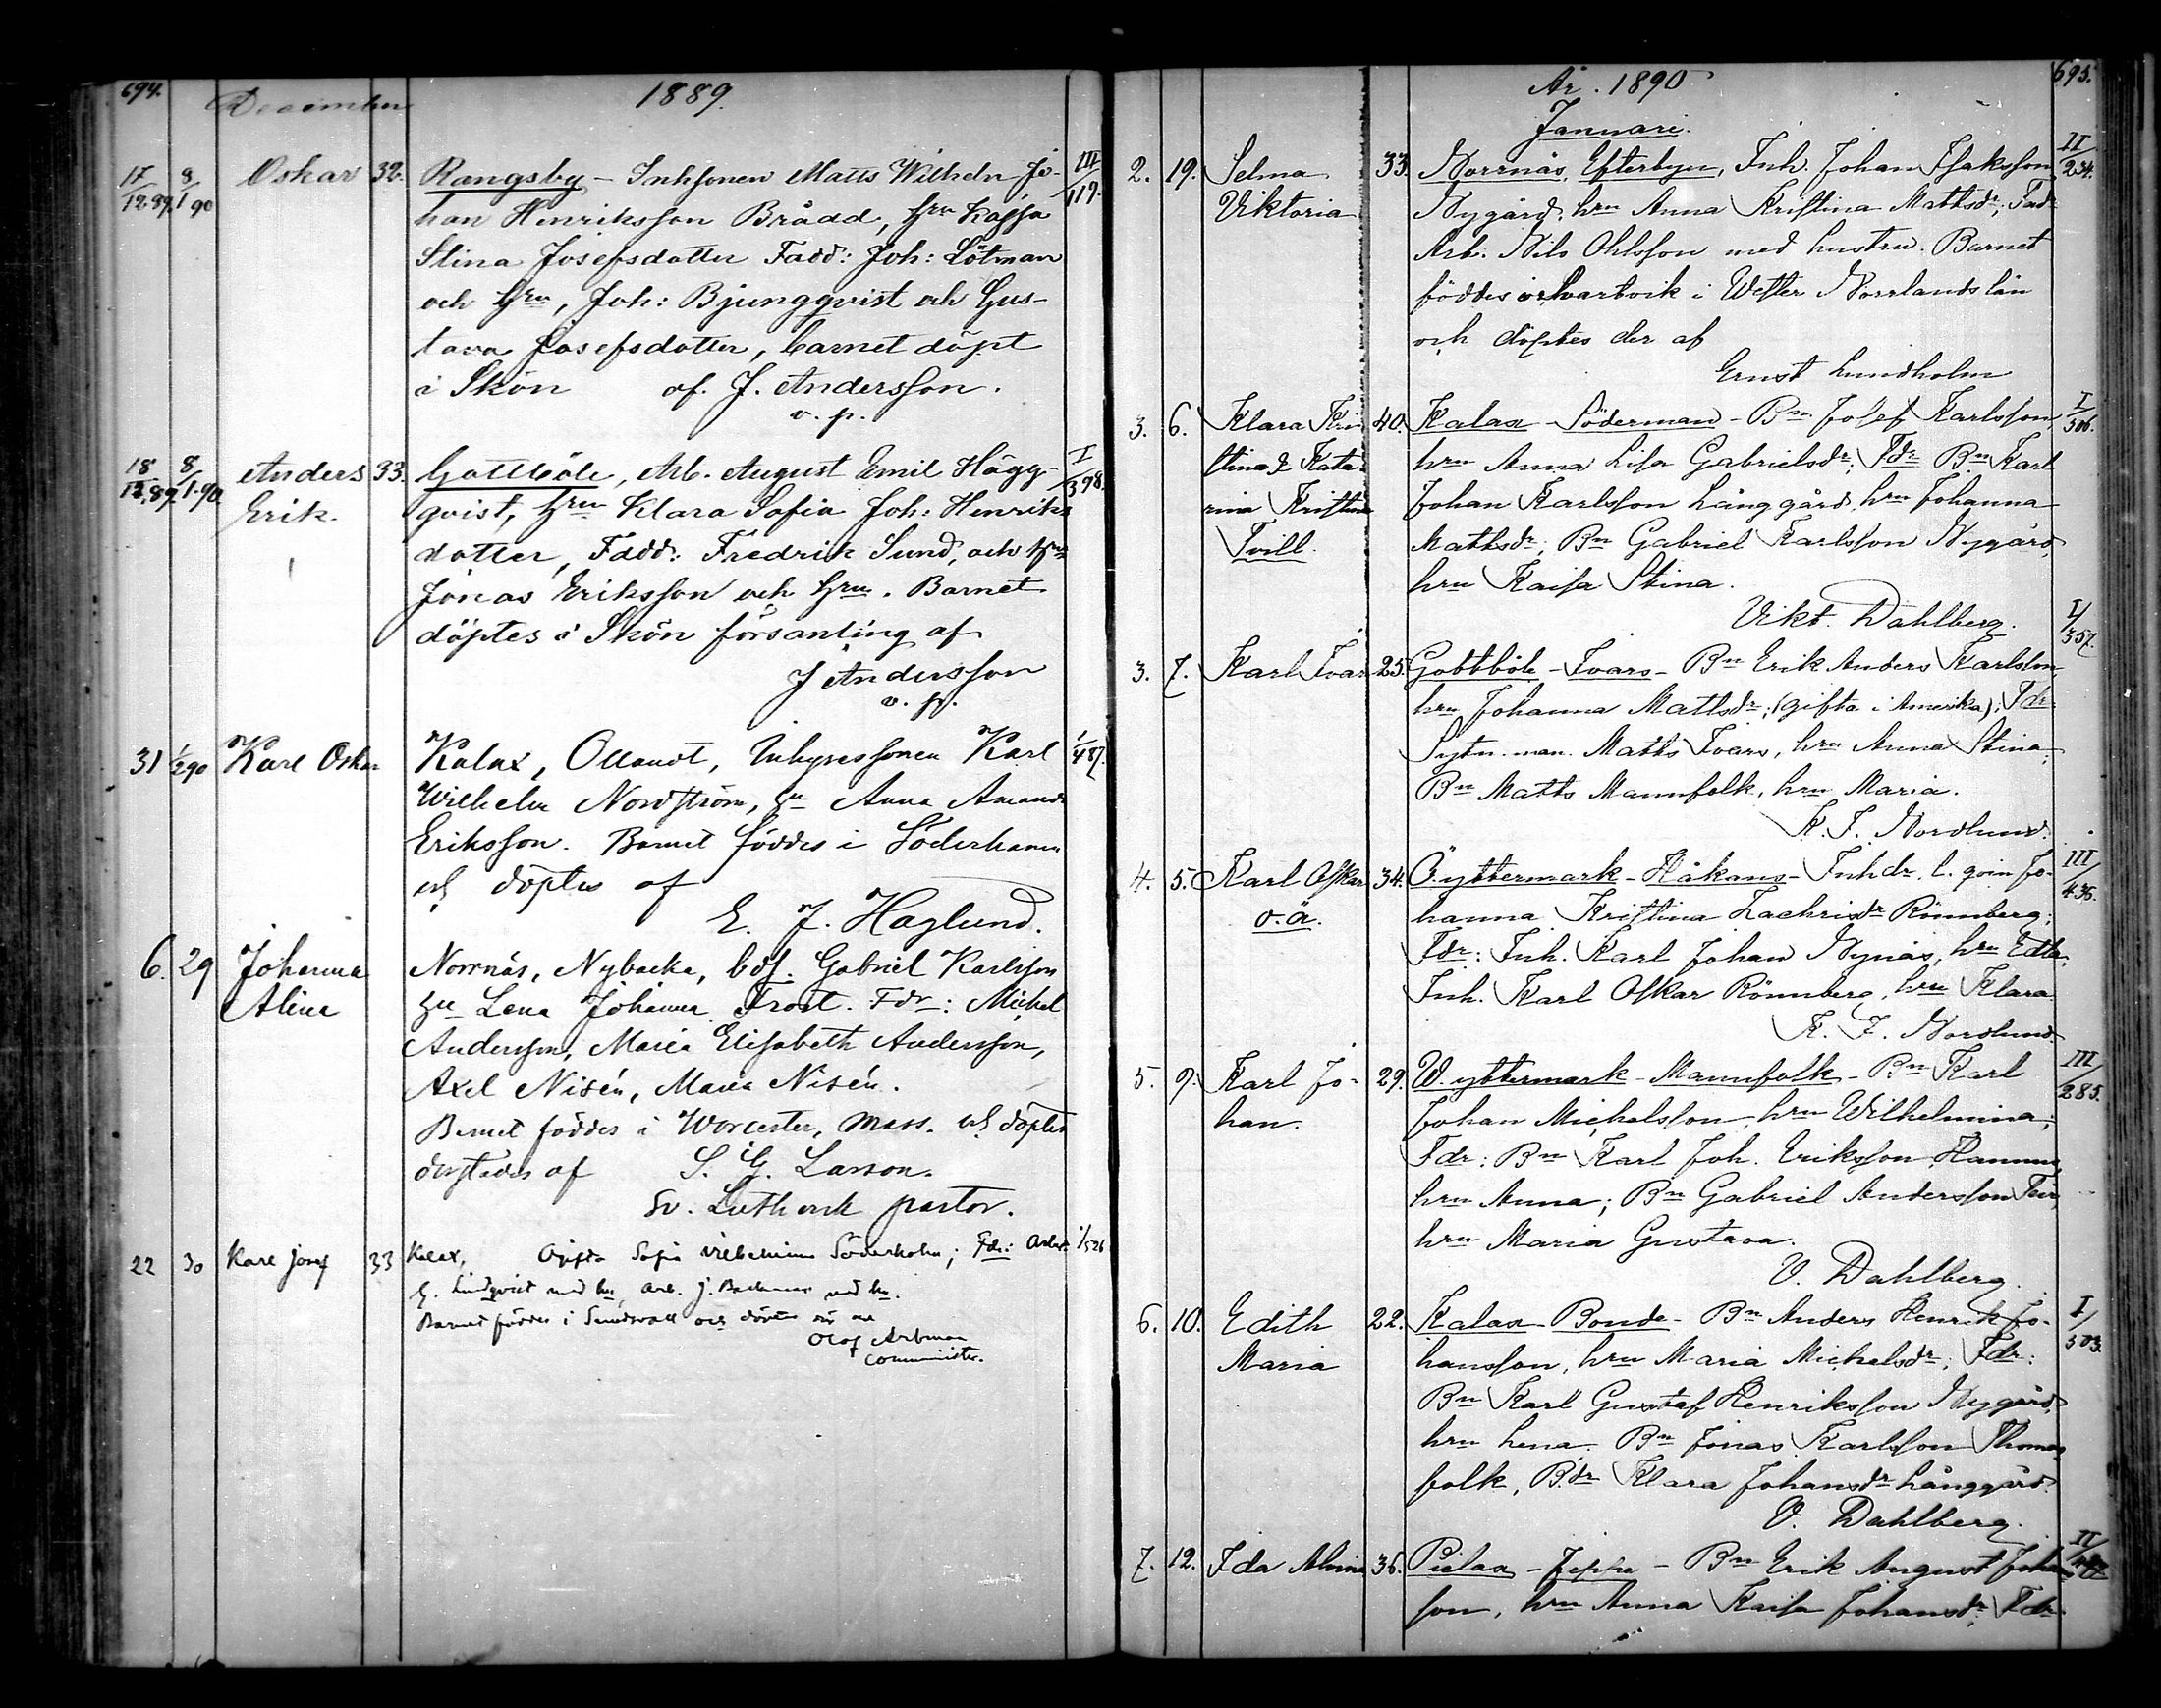 694.
December 1889.
17/12.89. 8/1 90 Oskar 32. Rangsby - Inhsonen Matts Wilhelm Jo- III/119.
han Henriksson Brådd, hru Kajsa
Stina Josefsdotter Fadd: Joh: Lötman
och hru, Joh: Bjungqvist och Gus-
tava Josefsdotter, barnet döpt
i Skön af. J. Andersson.
v. p.
18/12.89 8/1.90 Anders 33. Gottböle, Arb. August Emil Hägg- I/398.
Erik. qvist, hru Klara Sofia Joh: Henriks
dotter, Fadd: Fredrik Sund, och hru
Jonas Eriksson och hru. Barnet
döptes i Skön församling af
J Andersson
v. p.
31 1/2 90 Karl Oskar Kalax, Ollandt, Inhysessonen Karl 1/487.
Wilhelm Nordström, hu Anna Amanda
Eriksson. Barnet föddes i Söderhamn
och döptes af
E. J. Haglund.
6. 29 Johanna Norrnäs, Nybacka, bdf. Gabriel Karlsson
Alina hu Lena Johanna Frost. Fdr: Michel
Andersson, Maria Elisabeth Andersson,
Axel Nisén, Maria Nisén.
Barnet föddes i Worcester, Mass. och döptes
derstädes af S. G. Larson.
Sv. Luthersk pastor.
22 30 Karl Josef 33 Kalax, Ogifta Sofia Vilhelmina Söderholm; Fdr: Arbet. 1/526
G. Lindqvist med hu, Arb. J. Backman med hu.
Barnet föddes i Sundsvall och döptes af
Olof Arbman
Comminister.
695.
År. 1890
Januari.
2. 19. Selma 33. Norrnäs, Efterbyn, Inh. Johan Isaksson II/234.
Viktoria Nygård, hru Anna Kristina Mattsdr; Fadr
Arb. Nils Ohlsson med hustru. Barnet
föddes i Svartvik i Wester Norrlands län
och döptes der af
Ernst Lundholm
3. 6. Klara Kri 40. Kalax - Söderman - Bn Josef Karlsson, I/506.
stina & Kata- hru Anna Lisa Gabrielsdr; Fdr Bn Karl
rina Kristina Johan Karlsson Långgård, hru Johanna
Tvill. Mattsdr; Bn Gabriel Karlsson Nygård,
hru Kaisa Stina.
Vikt. Dahlberg.
3. 7. Karl Ivar 25. Gottböle - Ivars - Bn Erik Anders Karlsson, I/357.
hru Johanna Mattsdr; (gifta i Amerika); Fdr:
Sytn. man. Matts Ivars, hru Anna Stina;
Bn Matts Mannfolk, hru Maria.
K. F. Nordlund.
4. 5. Karl Oskar 34. Ö. yttermark - Håkans - Inhdr. l. qvin Jo- III/436.
o.ä. hanna Kristina Zachrisdr Rönnberg;
Fdr: Inh. Karl Johan Nynäs, hru Edla;
Inh. Karl Oskar Rönnberg, hru Klara
K. F. Nordlund
5. 9. Karl Jo- 29. W. yttermark - Mannfolk - Bn Karl III/285.
han. Johan Michelsson, hru Wilhelmina;
Fdr: Bn Karl Joh. Eriksson Hammar,
hru Anna; Bn Gabriel Andersson Teir,
hru Maria Gustava.
V. Dahlberg.
6. 10. Edith 22. Kalax - Bonde - Bn Anders Henrik Jo- I/503.
Maria hansson, hru Maria Michelsdr; Fdr:
Bn Karl Gustaf Henriksson Nygård,
hru Lena. Bn Jonas Karlsson Thomas
folk, B.dr Klara Johansdr Långgård.
V. Dahlberg.
7. 12. Ida Alvina 36. Pielax - Jeppe - Bn Erik August Johans
son, hru Anna Kaisa Johansdr; Fdr.